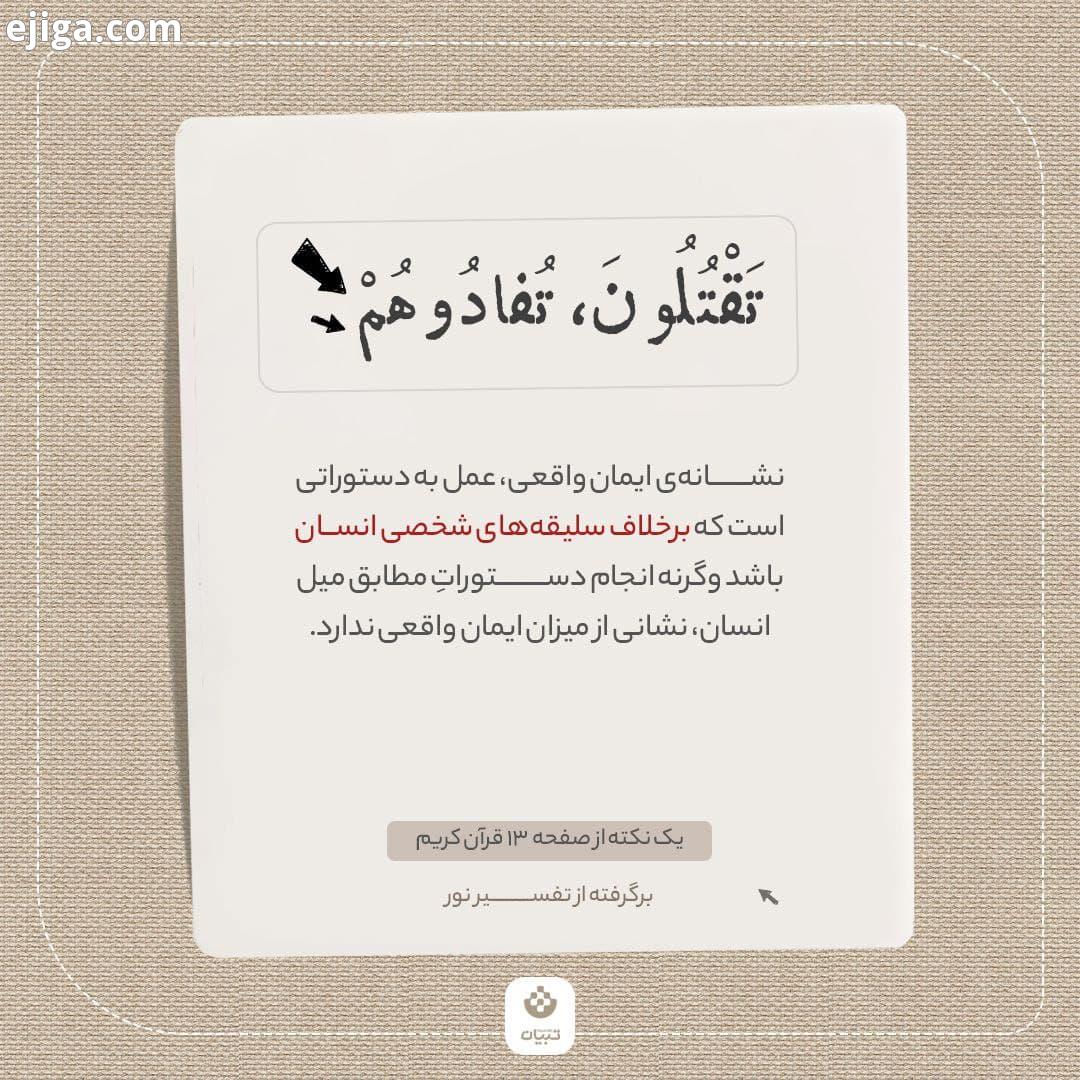 ejiga.com
تَقْتُلُونَ، تُفادُوهُمْ
نشـــانه‌ی ایمان واقعی، عمل به دستوراتی
است که برخلاف سلیقه‌های شخصی انسـان
باشد وگرنه انجام دســـتوراتِ مطابق میل
انسان، نشانی از میزان ایمان واقعی ندارد.
یک نکته از صفحه ۱۳ قرآن کریم
برگرفته از تفســـیر نور
تبیان